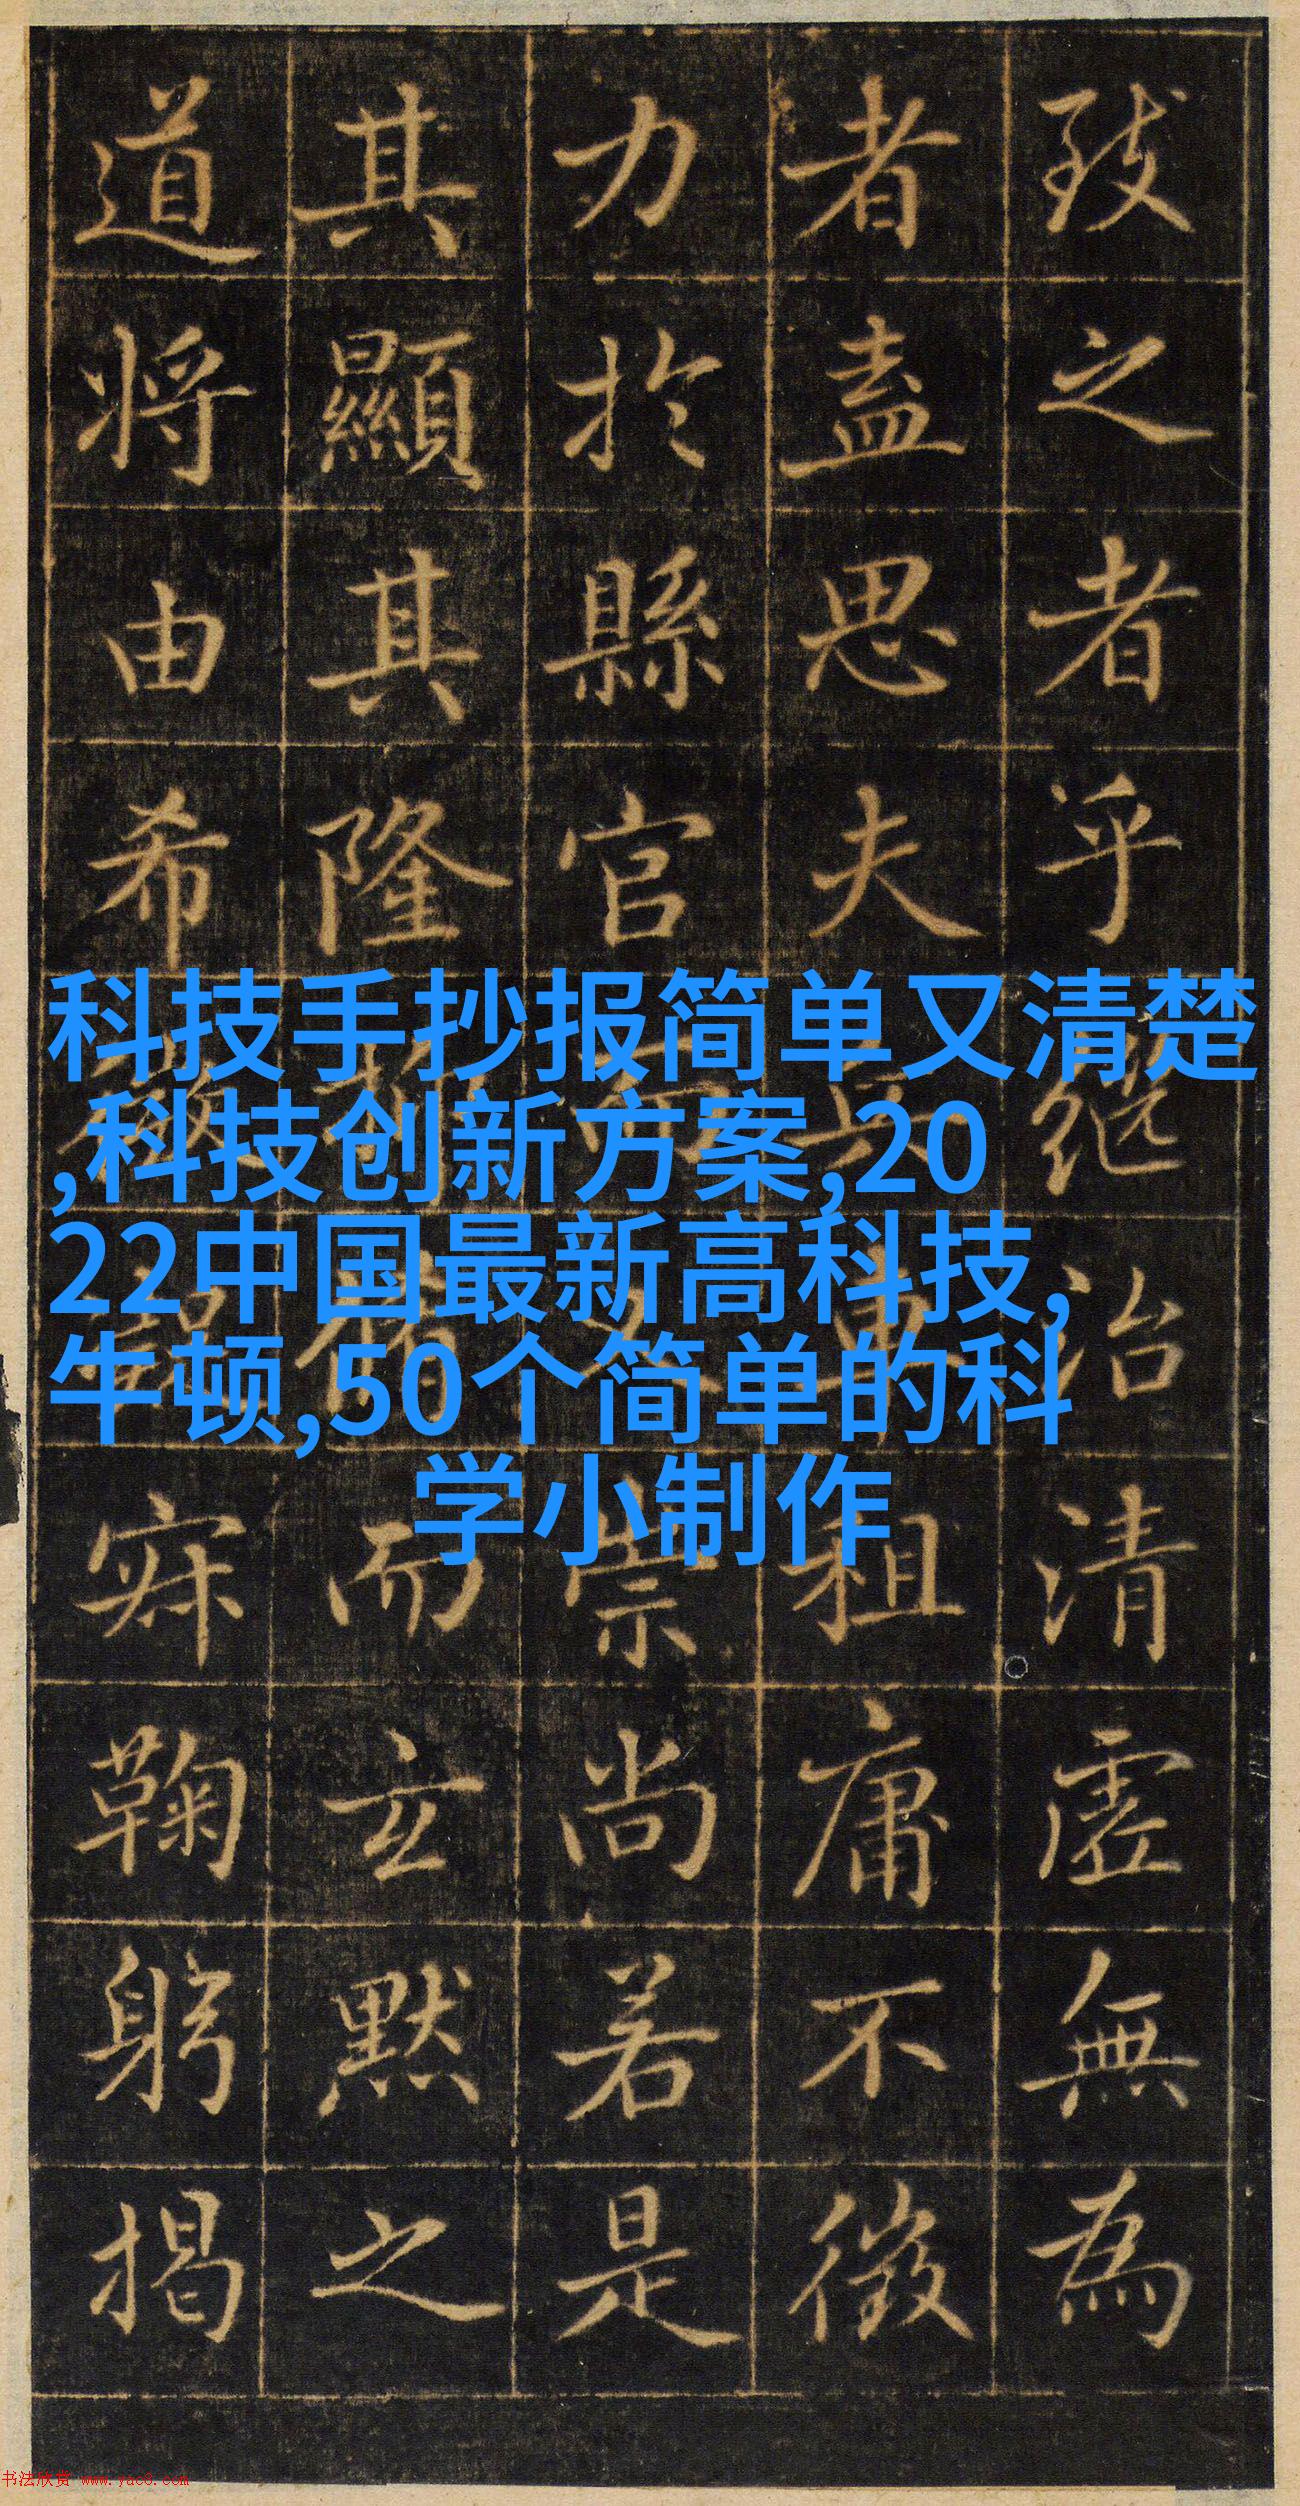 致之者乎继治清虛無為
者盡思夫兵車租庸不徵
力於縣官而又崇尚若是
其顯其隆而玄默之
道將由希鞠躬揭
科技手抄报简单又清楚
,科技创新方案,20
22中国最新高科技,
牛顿,50个简单的科
学小制作
书法欣赏 www.yac8.com